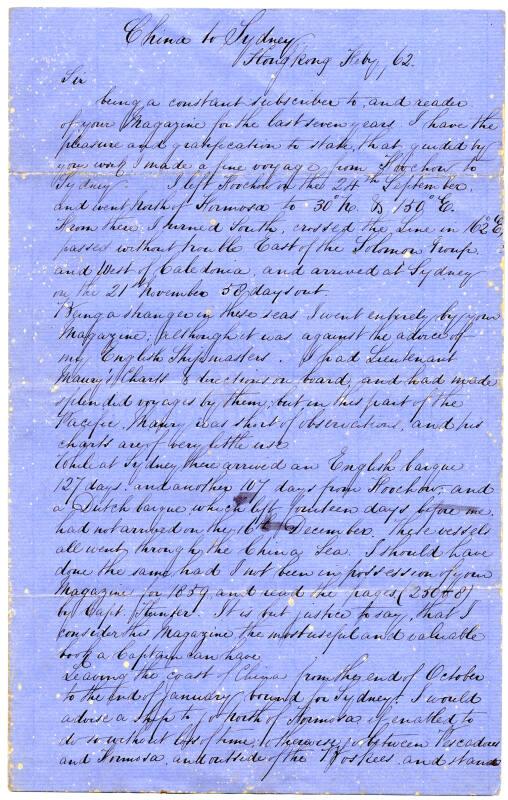 China to Sydney
Hongkong Feby 62.
Sir
being a constant subscriber to, and reader
of your Magazine for the last seven years I have the
pleasure and gratification to state, that guided by
your work I made a fine voyage from Foochow to
Sydney. I left Foochow on the 24th September.
and went North of Formosa to 30° N. & 150° E.
From there, I turned South, crossed the Line in 162° E,
passed without trouble East of the Solomon Group.
and West of Caledonia, and arrived at Sydney
on the 21 November 58 days out.
Being a stranger in these seas I went entirely by your
Magazine; although it was against the advice of
my English Shipmasters. I had Lieutenant
Maury's Charts & directions on board, and had made
splendid voyages by them; but, in this part of the
Pacific, Maury was short of observations, and his
charts are of very little use
While at Sydney there arrived an English barque
127 days, and another 107 days from Foochow, and
a Dutch barque which left fourteen days before me
had not arrived on the 16th December. These vessels
all went through the China Sea. I should have
done the same, had I not been in possession of your
Magazine for 1859 and read the pages (250 &
by Capt. It is but justice to say, that I
consider this Magazine the most useful and valuable
book a Captain can have
Leaving the coast of China from the end of October
to the end of January bound for Sydney. I would
advise a ship to go North of Formosa if enabled to
do so without loss of time, otherwise go between Pescadores
and Formosa, and outside of the and stand